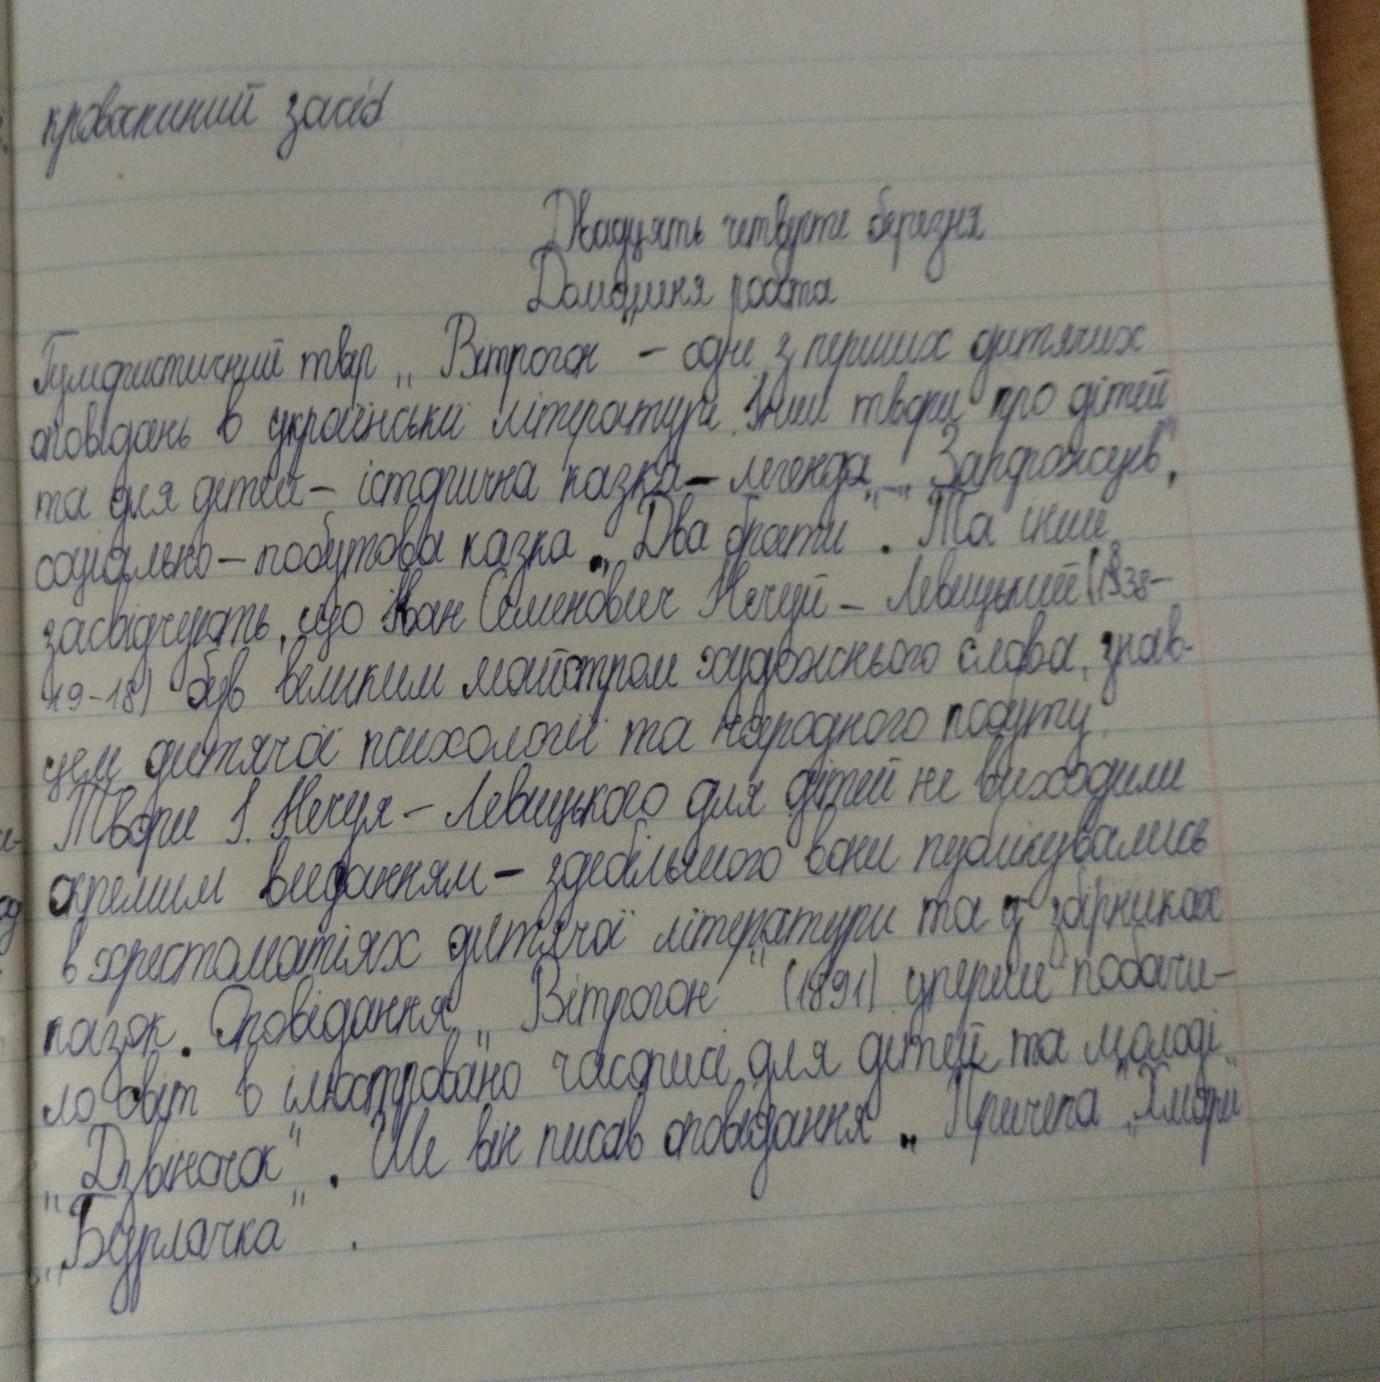 засід
Двадцять четверте березня
Домашня робота
Гумористичний твір „ Вітрогон – одне з перших дитячих
оповідань в українські літератури. Інші твори про дітей
та для дітей – історична казка – легенда „ Запорожців",
соціально – побутова казка „ Два брати". Та інші
засвідчують, що Іван Семенович Нечуй – Левицький (1838–
19-18) був великим майстром художнього слова, знав-
цем дитячої психології та народного побуту.
Твори І. Нечуя – Левицького для дітей не виходили
окремим виданням – здебільшого вони публікувались
в хрестоматіях дитячої літератури та у збірниках
казок. Оповідання „ Вітрогон " (1891) уперше побачи-
ло світ в ілюстровано часописі для дітей та молоді
„ Дзвіночок". Ще він писав оповідання „ Причепа „Хмари"
„Бурлачка" .